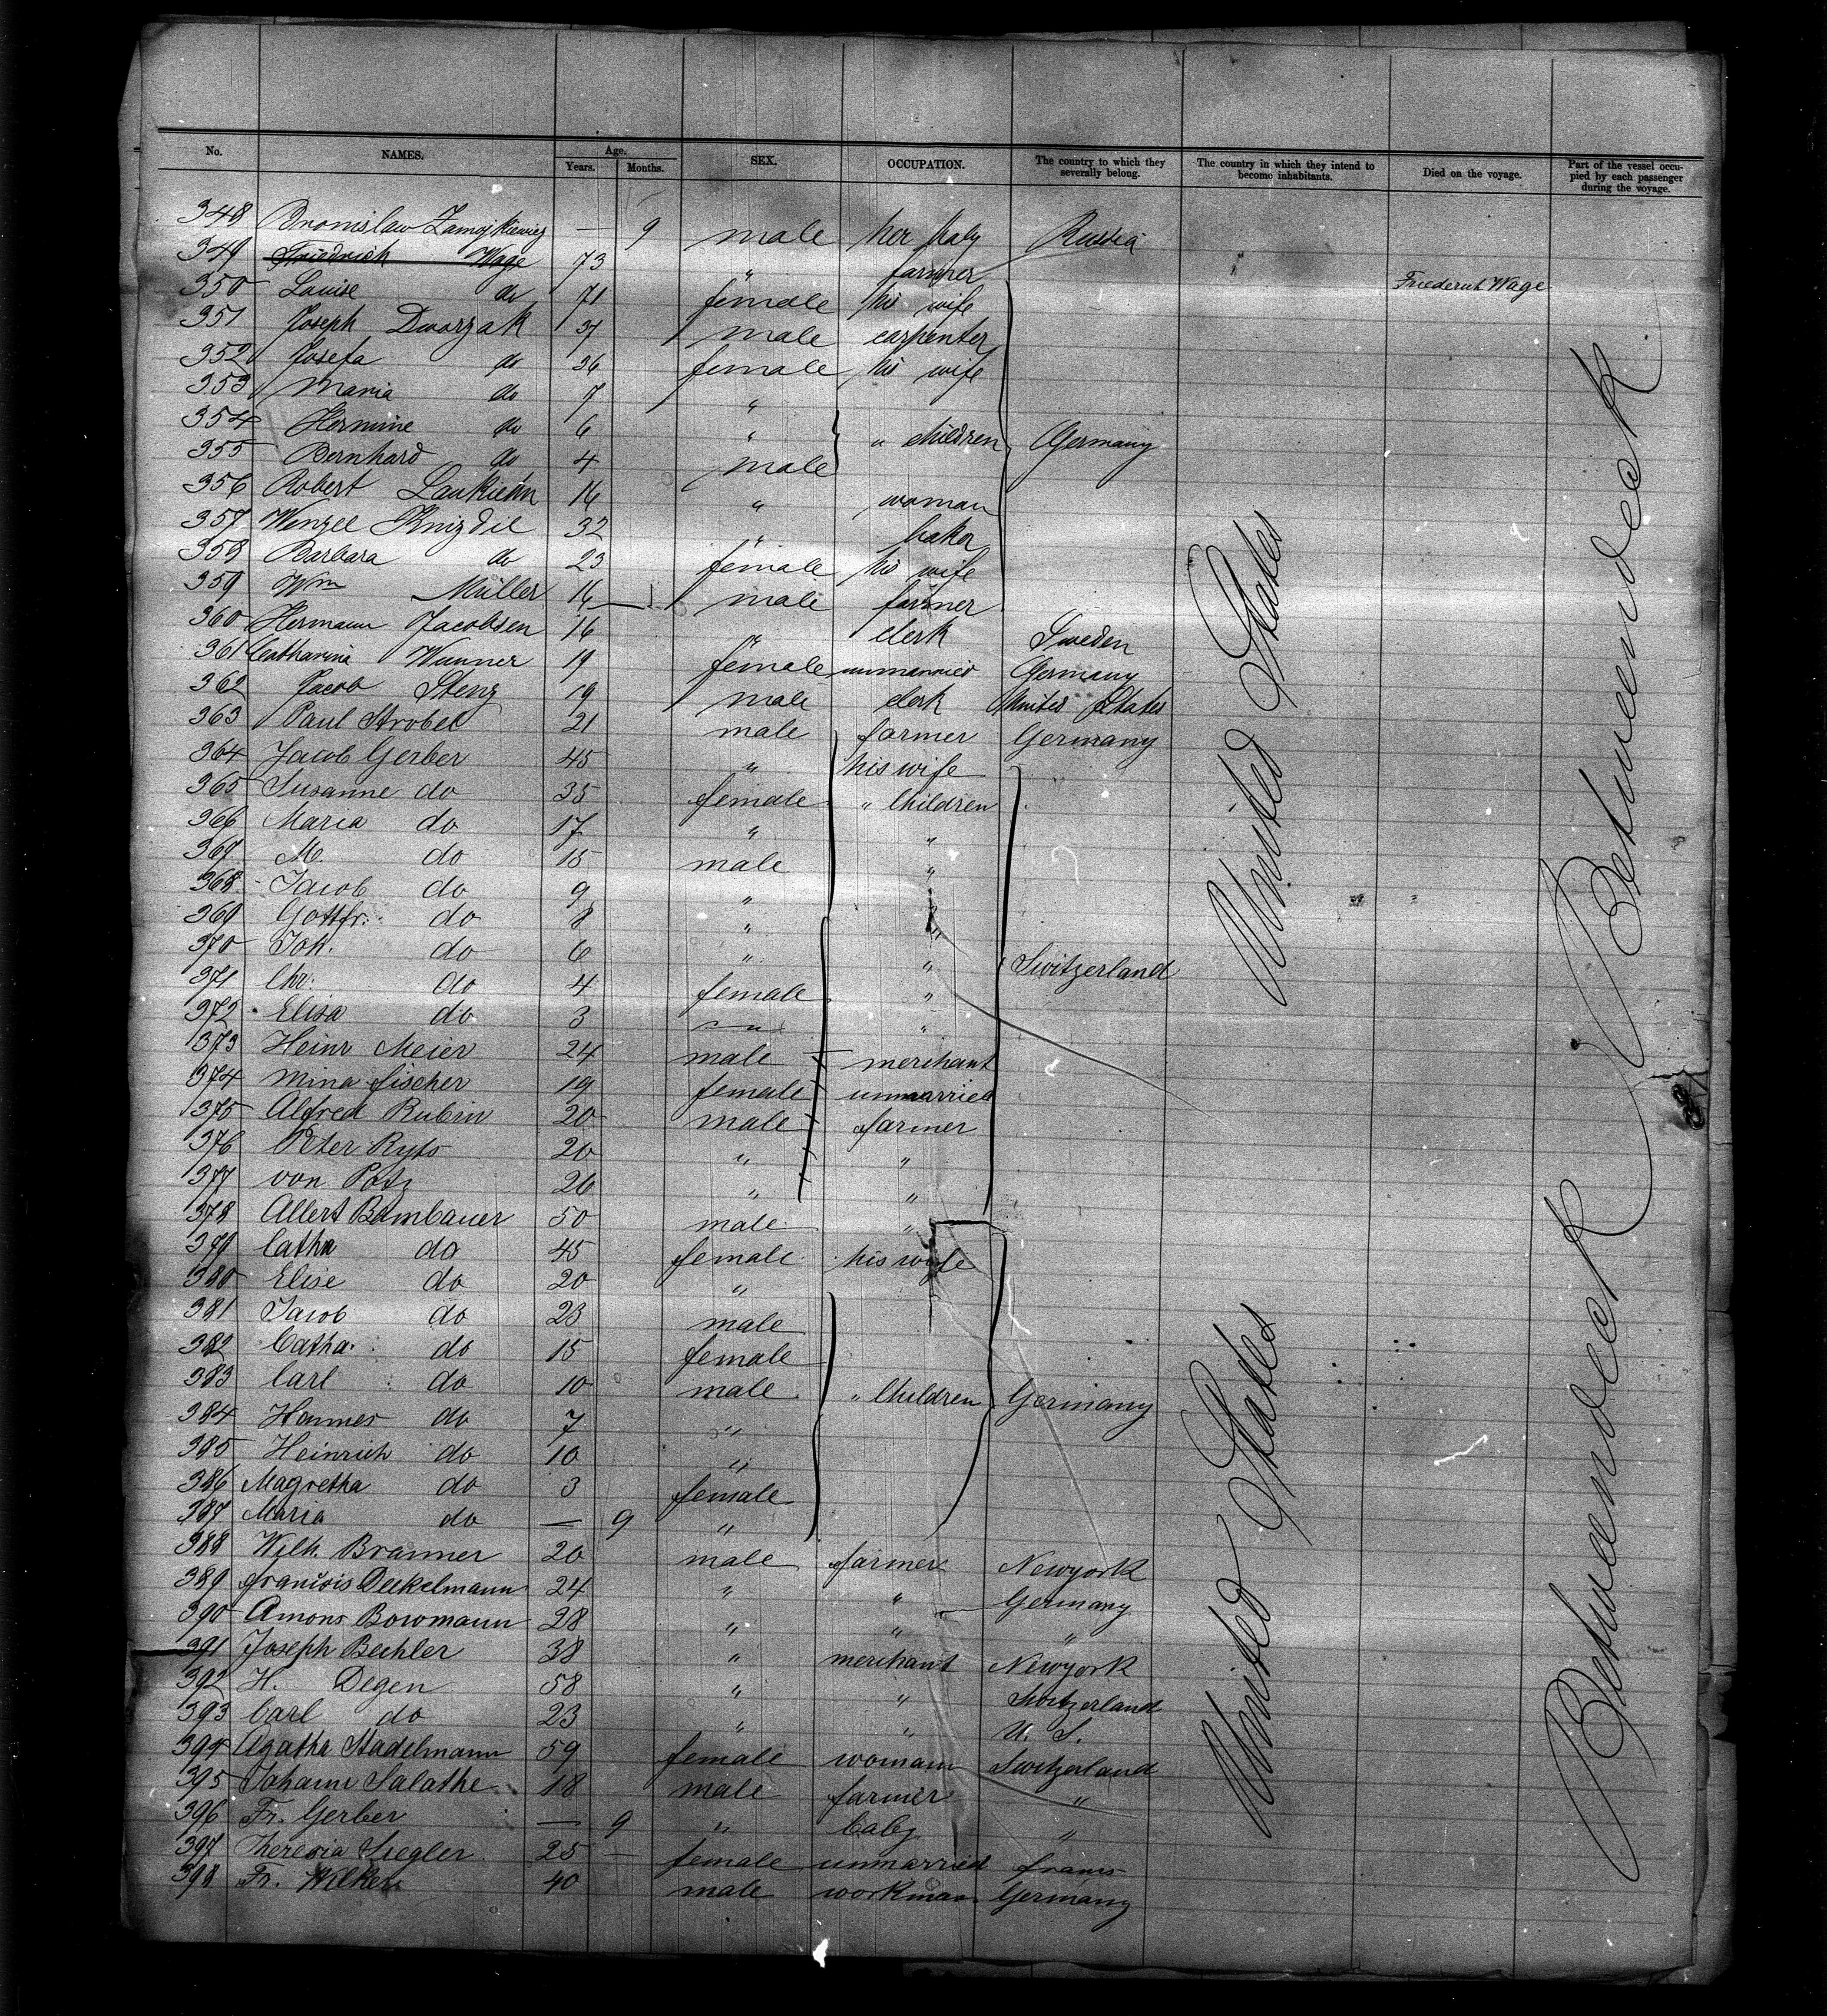 No. NAMES. Age. Years. Months. SEX. OCCUPATION. The country to which they severally belong. The country in which they intend to become inhabitants. Died on the voyage. Part of the vessel occupied by each passenger during the voyage.
348 Bronislaw — 9 male her baby Russia
349 Friedrich Wage 73 " farmer Friederich Wage
350 Louise do 71 female his wife
351 Joseph Dworzak 31 male carpenter
352 Josefa do 26 female his wife
353 Maria do 7 "
354 Hermine do 6 " " children Germany
355 Bernhard do 4 male
356 Robert 16 " woman
357 Wenzel 32 " baker
358 Barbara do 23 female his wife
359 Wm Müller 16 male farmer
360 Hermann Jacobsen 16 " clerk Sweden
361 Catharina Wanner 19 female unmarried Germany
362 Jacob Stenz 19 male clerk United States
363 Paul Strobel 21 male farmer Germany
364 Jacob Gerber 45 " his wife
365 Susanne do 35 female " Children
366 Maria do 17 " "
367 M. do 15 male "
368 Jacob do 9 " "
369 Gottfr. do 8 " "
370 Joh. do 6 " " Switzerland
371 Chr. do 4 female "
372 Elisa do 3 " "
373 Heinr Meier 24 male merchant
374 Mina Fischer 19 female unmarried
375 Alfred Rubin 20 male farmer
376 Peter Ryts 20 " "
377 von Potz 26 " "
378 Allert Bambauer 50 male "
379 Catha do 45 female his wife
380 Elise do 20 "
381 Jacob do 23 male
382 Catha. do 15 female
383 Carl do 10 male " Children Germany
384 Hannes do 7 "
385 Heinrich do 10 "
386 Magretha do 3 female
387 Maria do — 9 "
388 Wilh. Branner 20 male farmer Newyork
389 Francois Deckelmann 24 " " Germany
390 Amons Bowmann 28 " " "
391 Joseph Bechler 38 " merchant Newyork
392 H. Degen 58 " " Switzerland
393 Carl do 23 " " U. S.
394 Agatha Stadelmann 59 female womann Switzerland
395 Johann Salathe 18 male farmer "
396 Fr. Gerber — 9 " baby "
397 Theresia Siegler 25 — female unmarried
398 Fr. Wilken 40 male workman Germany
United States
United States
Betweendeck
Betweendeck